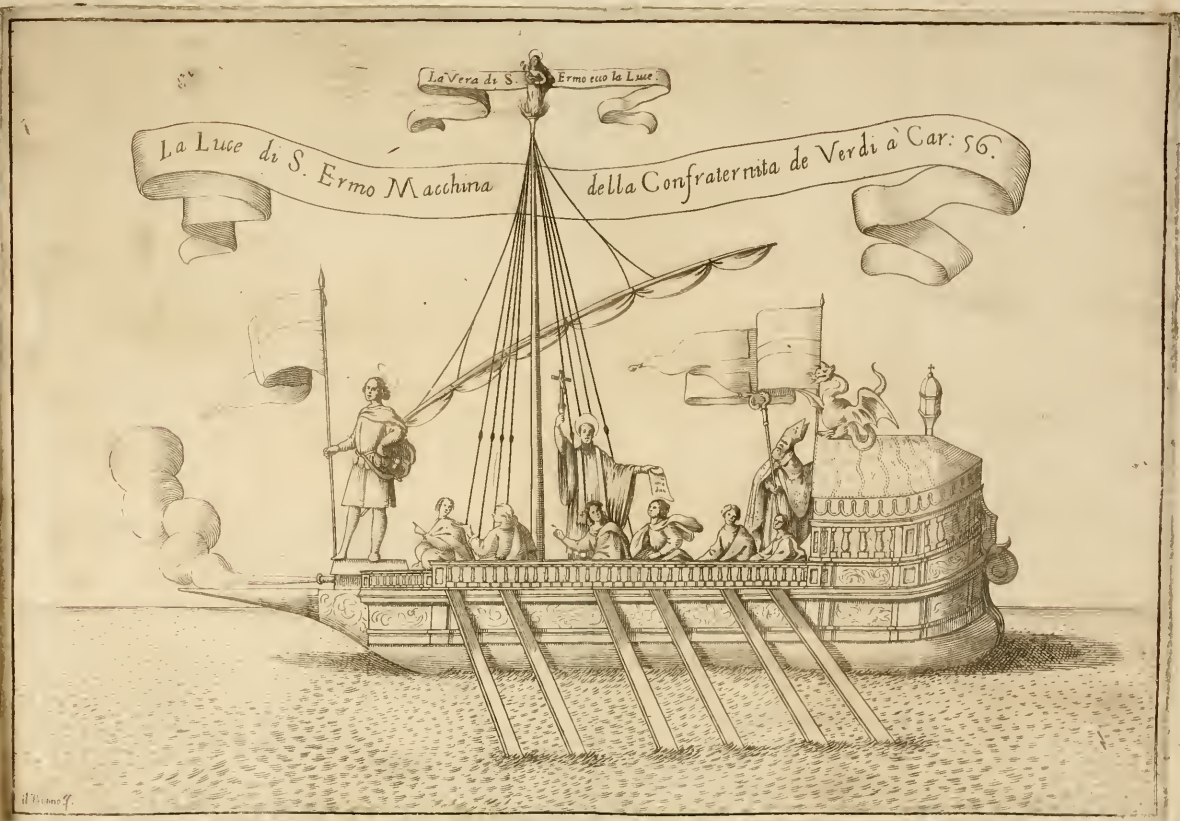 La Vera di S. Ermo ecco la Luce.
La Luce di S. Ermo Macchina della Confraternita de Verdi à Car: 56.
il